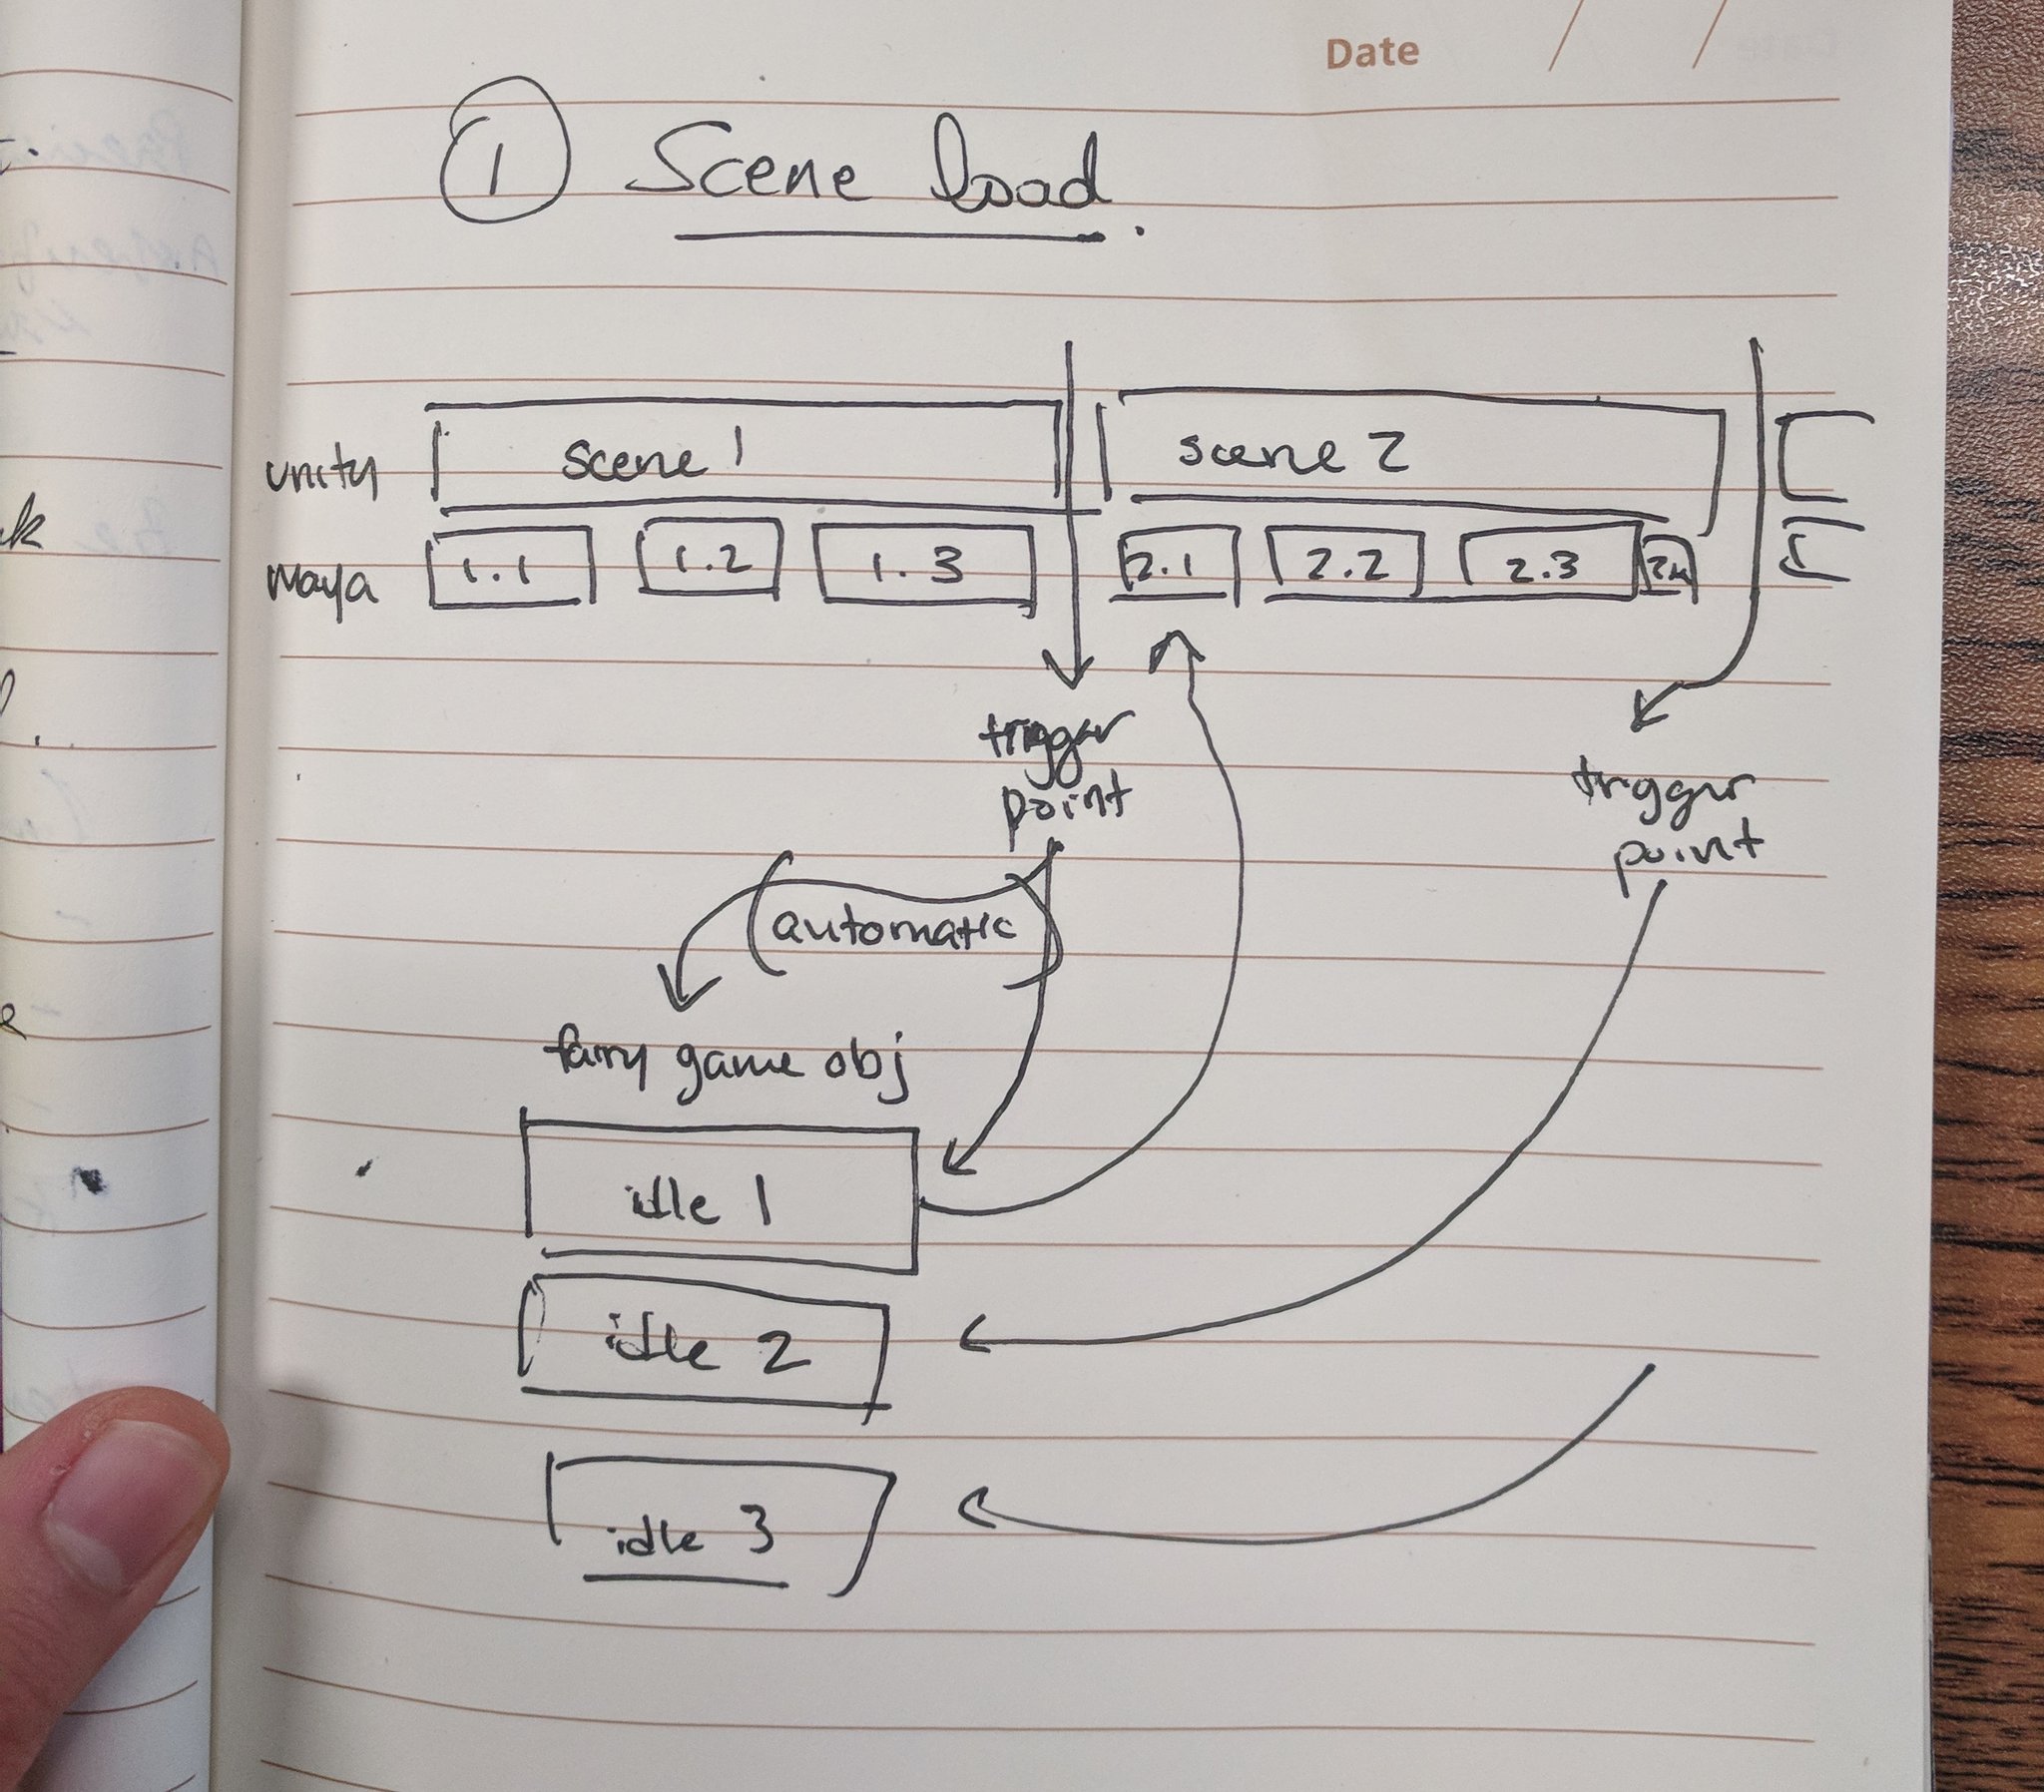 Date / /
① Scene load.
unity scene 1 scene 2
maya 1.1 1.2 1.3 2.1 2.2 2.3
trigger
point
trigger
point
(automatic)
fairy game obj
idle 1
idle 2
idle 3